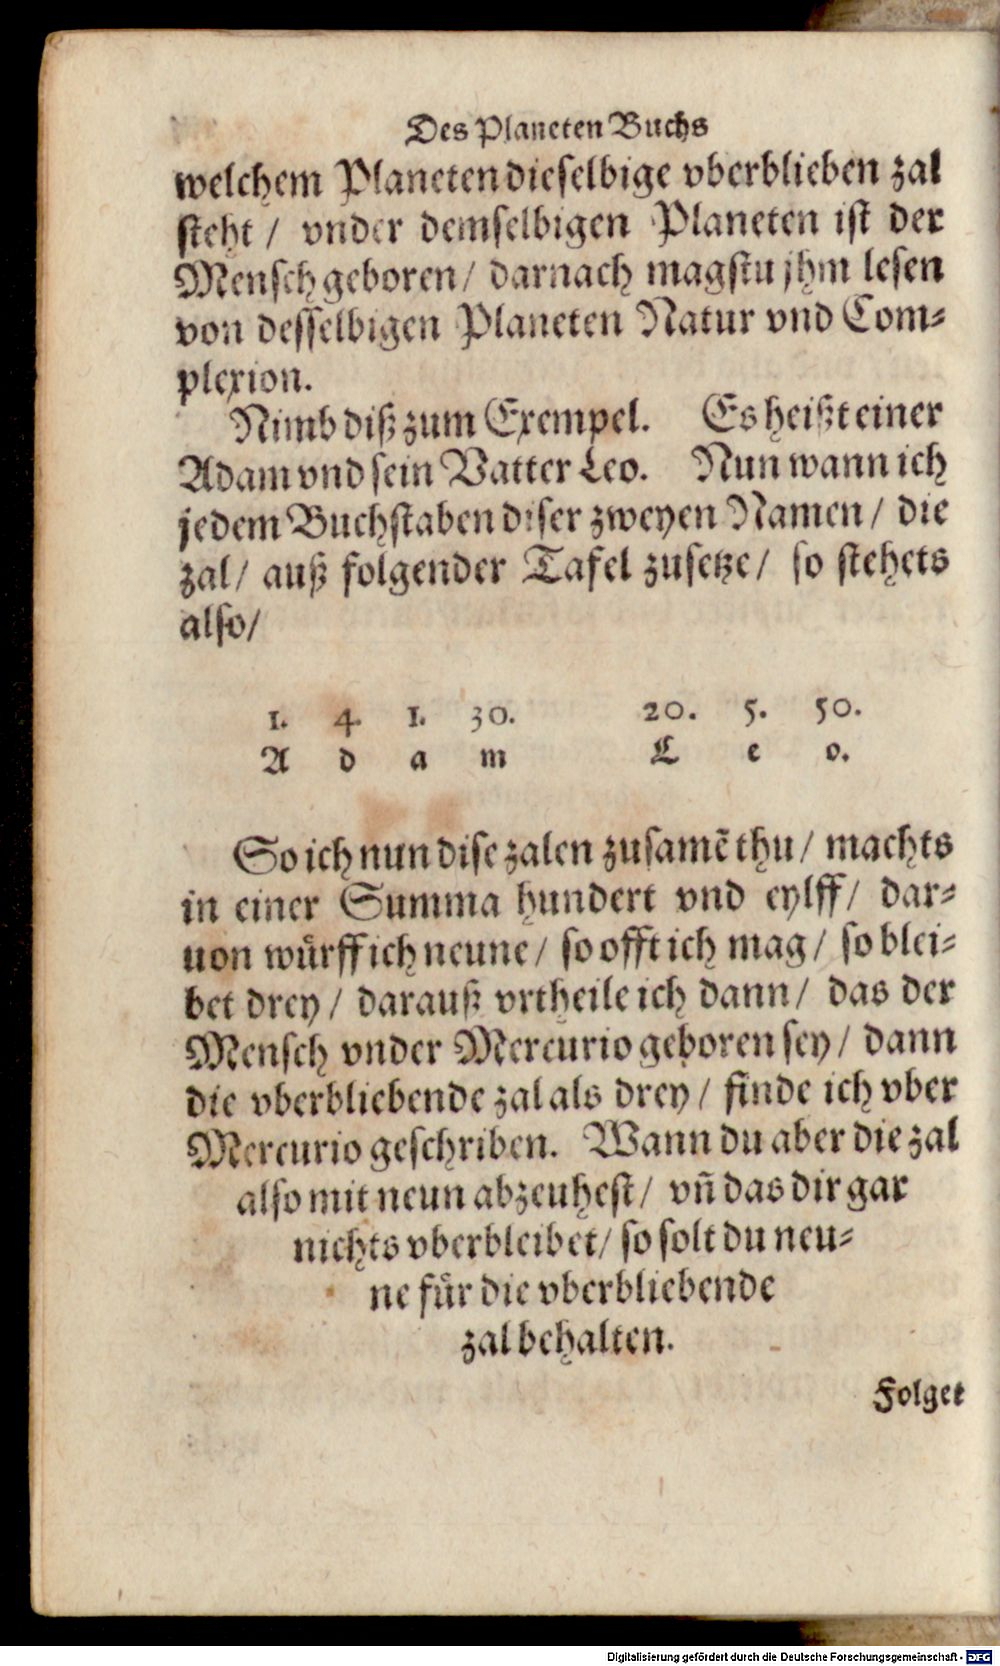 Des Planeten Buchs
welchem Planeten dieselbige vberblieben zal
steht / vnder demselbigen Planeten ist der
Mensch geboren / darnach magstu jhm lesen
von desselbigen Planeten Natur vnd Com⸗
plexion.
Nimb diß zum Exempel. Es heißt einer
Adam vnd sein Vatter Leo. Nun wann ich
jedem Buchstaben diser zweyen Namen / die
zal / auß folgender Tafel zusetze / so stehets
also /
1. 4. 1. 30. 20. 5. 50.
A d a m L e o.
So ich nun dise zalen zusamẽ thu / machts
in einer Summa hundert vnd eylff / dar⸗
uon wuͤrff ich neune / so offt ich mag / so blei⸗
bet drey / darauß vrtheile ich dann / das der
Mensch vnder Mercurio geboren sey / dann
die vberbliebende zal als drey / finde ich vber
Mercurio geschriben. Wann du aber die zal
also mit neun abzeuhest / vñ das dir gar
nichts vberbleibet / so solt du neu⸗
ne fuͤr die vberbliebende
zal behalten.
Folget
Digitalisierung gefördert durch die Deutsche Forschungsgemeinschaft - DFG